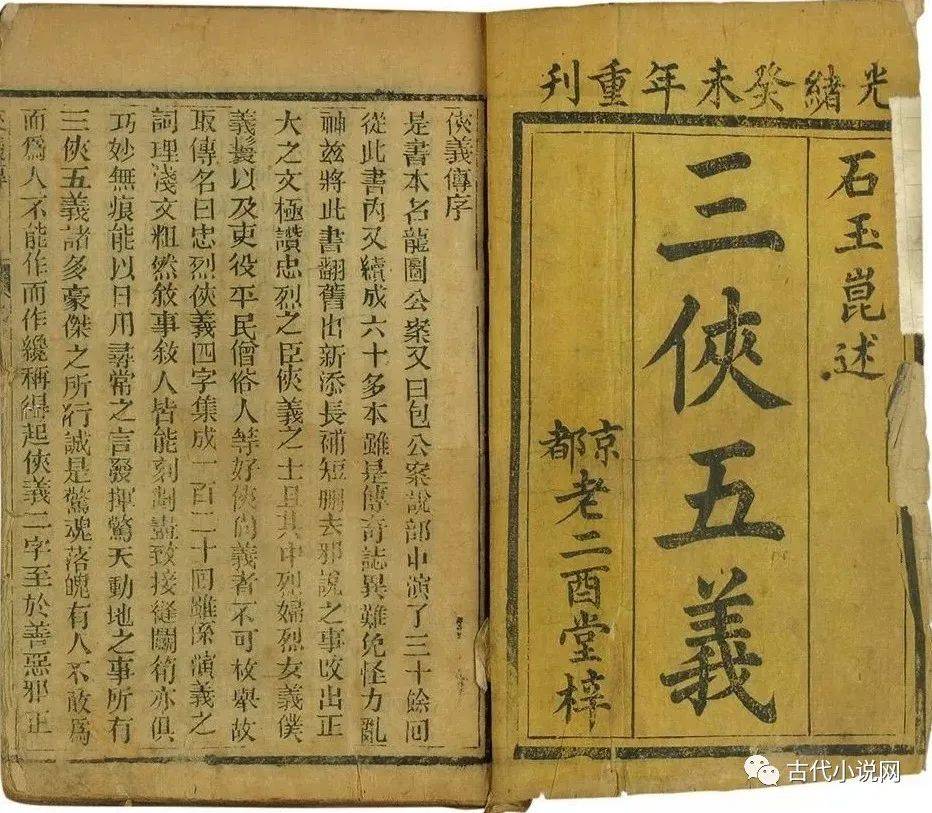 光緒癸未年重刊
石玉崑述
三俠五義
京都老二酉堂梓
俠義傳序
是書本名龍圖公案又曰包公案說部中演了三十餘回
從此書內又續成六十多本雖是傳奇誌異難免怪力亂
神茲將此書翻舊出新添長補短刪去邪說之事改出正
大之文極讚忠烈之臣俠義之士且其中烈婦烈女義僕
義鬟以及吏役平民僧俗人等好俠尚義者不可枚舉故
取傳名曰忠烈俠義四字集成一百二十回雖係演義之
詞理淺文粗然敘事敘人皆能刻劃盡致接縫鬬筍亦俱
巧妙無痕能以日用尋常之言發揮驚天動地之事所有
三俠五義諸多豪傑之所行誠是驚魂落魄有人不敢為
而為人不能作而作纔稱得起俠義二字至於善惡邪正
古代小说网